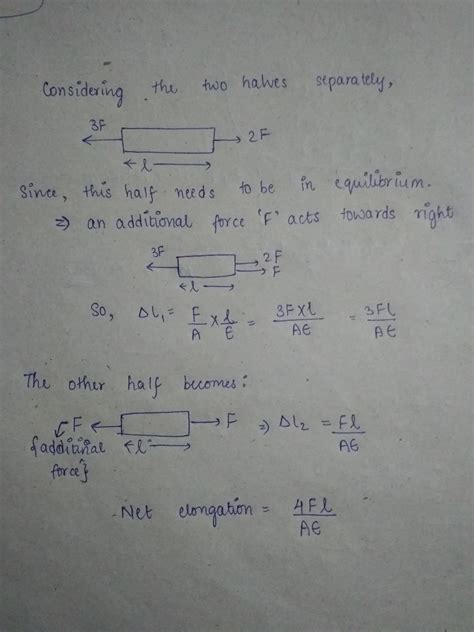 Considering the two halves separately,
3F 2F
l
Since, this half needs to be in equilibrium.
⇒ an additional force 'F' acts towards right
3F 2F
F
l
So, Δl₁ = F/A × l/E = 3F×l/AE = 3Fl/AE
The other half becomes:
F F ⇒ Δl₂ = Fl/AE
{additional force} l
Net elongation = 4Fl/AE